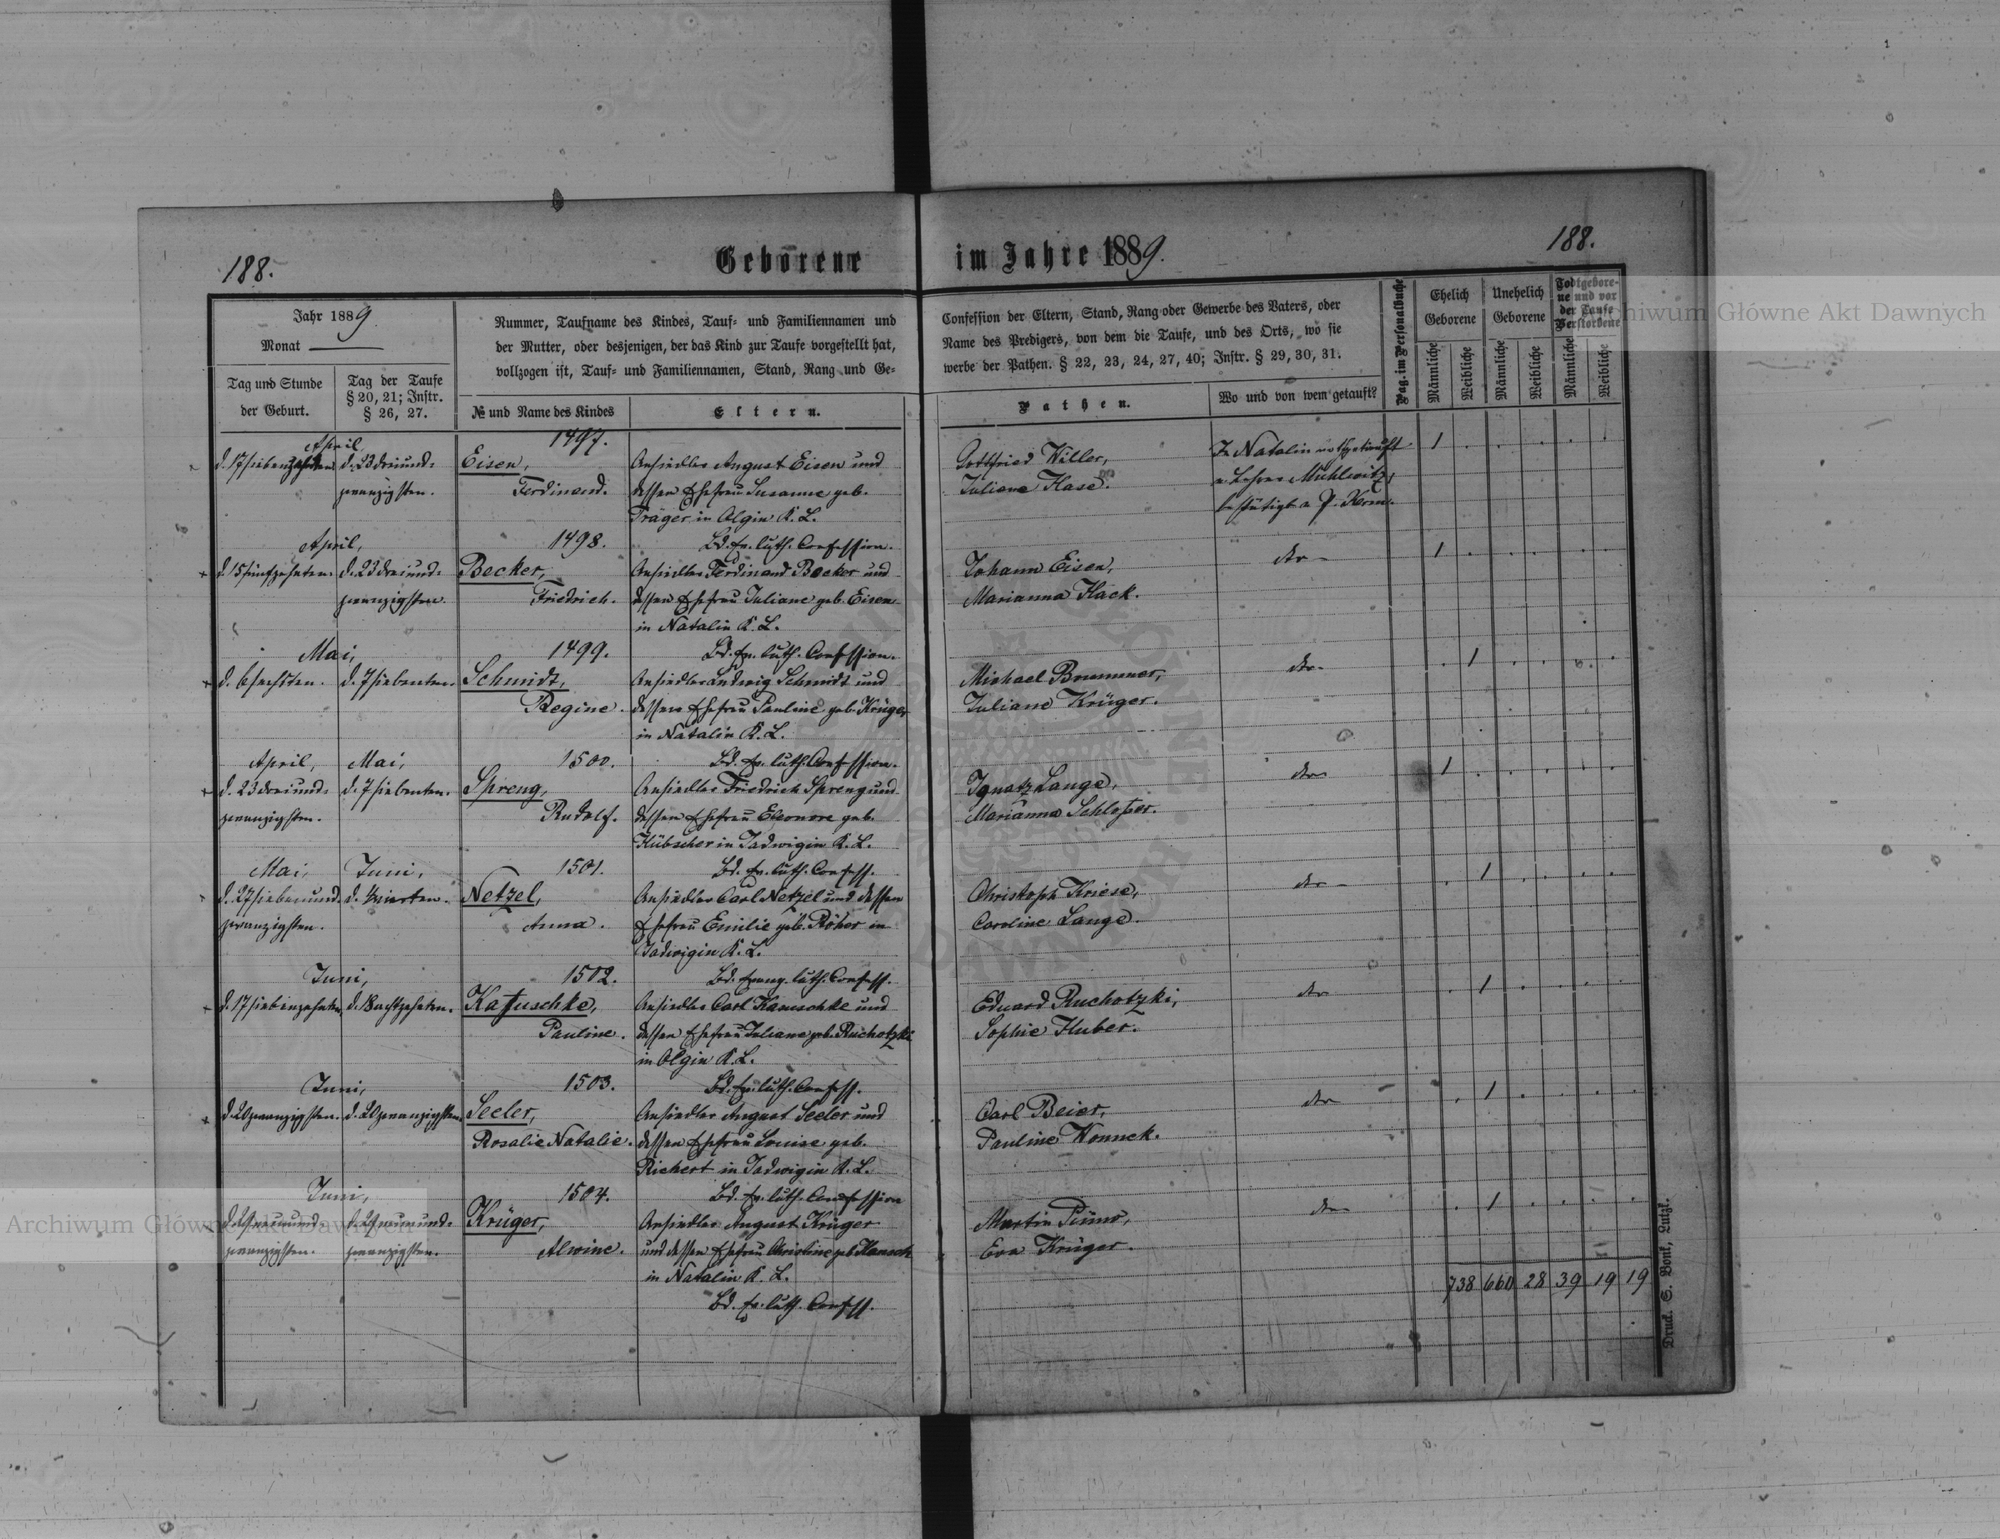 188.
Geborene im Jahre 1889.
188.
Jahr 1889
Monat
Tag und Stunde der Geburt.
Tag der Taufe § 20, 21; Instr. § 26, 27.
Nummer, Taufname des Kindes, Tauf- und Familiennamen und
der Mutter, oder desjenigen, der das Kind zur Taufe vorgestellt hat,
vollzogen ist, Tauf- und Familiennamen, Stand, Rang und Ge-
№ und Name des Kindes
Eltern.
Confession der Eltern, Stand, Rang oder Gewerbe des Vaters, oder
Name des Predigers, von dem die Taufe, und des Orts, wo sie
werbe der Pathen. § 22, 23, 24, 27, 40; Instr. § 29, 30, 31.
Pathen.
Wo und von wem getauft?
Pag. im Personalbuche
Ehelich Geborene
Unehelich Geborene
Todtgeborene und vor der Taufe Verstorbene
Männliche
Weibliche
Männliche
Weibliche
Männliche
Weibliche
April
1497.
d. 17 siebenzehnten
d. 23 dreiund-
zwanzigsten.
Eisen,
Ferdinand.
Ansiedler August Eisen und
dessen Ehefrau Susanne geb.
Träger in Olgin K. L.
Bd. Ev. luth. Confession.
Gottfried Willer,
Juliane Hase.
In Natalin nothgetauft
v. Lehrer Mühlwitz,
bestätigt v. P. Kerm.
1
April,
1498.
d. 15 fünfzehnten.
d. 23 dreiund-
zwanzigsten.
Becker,
Friedrich.
Ansiedler Ferdinand Becker und
dessen Ehefrau Juliane geb. Eisen
in Natalin K. L.
Bd. Ev. luth. Confession.
Johann Eisen,
Marianna Hack.
dto
1
Mai,
1499.
d. 6 sechsten.
d. 7 siebenten.
Schmidt,
Regine.
Ansiedler Ludwig Schmidt und
dessen Ehefrau Pauline geb. Krüger
in Natalin K. L.
Bd. Ev. luth. Confession.
Michael Brummer,
Juliane Krüger.
dto
1
April,
Mai,
1500.
d. 23 dreiund-
zwanzigsten.
d. 7 siebenten.
Spreng,
Rudolf.
Ansiedler Friedrich Spreng und
dessen Ehefrau Eleonore geb.
Hübscher in Jadwigin K. L.
Bd. Ev. luth. Confess.
Ignatz Lange,
Marianna Schlosser.
dto
1
Mai,
Juni,
1501.
d. 27 siebenund-
zwanzigsten.
d. 4 vierten.
Netzel,
Anna.
Ansiedler Carl Netzel und dessen
Ehefrau Emilie geb. Röher in
Jadwigin K. L.
Bd. Evang. luth. Confess.
Christoph Kriese,
Caroline Lange.
dto
1
Juni,
1502.
d. 17 siebenzehnten
d. 18 achtzehnten.
Katuschke,
Pauline.
Ansiedler Carl Kanuschke und
dessen Ehefrau Juliane geb. Ruchotzki
in Olgin K. L.
Bd. Ev. luth. Confess.
Eduard Ruchotzki,
Sophie Huber.
dto
1
Juni,
1503.
d. 20 zwanzigsten.
d. 20 zwanzigsten.
Seeler,
Rosalie Natalie.
Ansiedler August Seeler und
dessen Ehefrau Louise geb.
Richert in Jadwigin K. L.
Bd. Ev. luth. Confession
Carl Beier,
Pauline Konnek.
dto
1
Juni,
1504.
d. 29 neunund-
zwanzigsten.
d. 29 neunund-
zwanzigsten.
Krüger,
Alwine.
Ansiedler August Krüger
und dessen Ehefrau Christine geb. Hansch
in Natalin K. L.
Bd. Ev. luth. Confess.
Eva Krüger.
dto
1
738 660 28 39 19 19
Druck. S. Bonk, Lutzk.
Archiwum Główne Akt Dawnych
Archiwum Główne Akt Dawnych